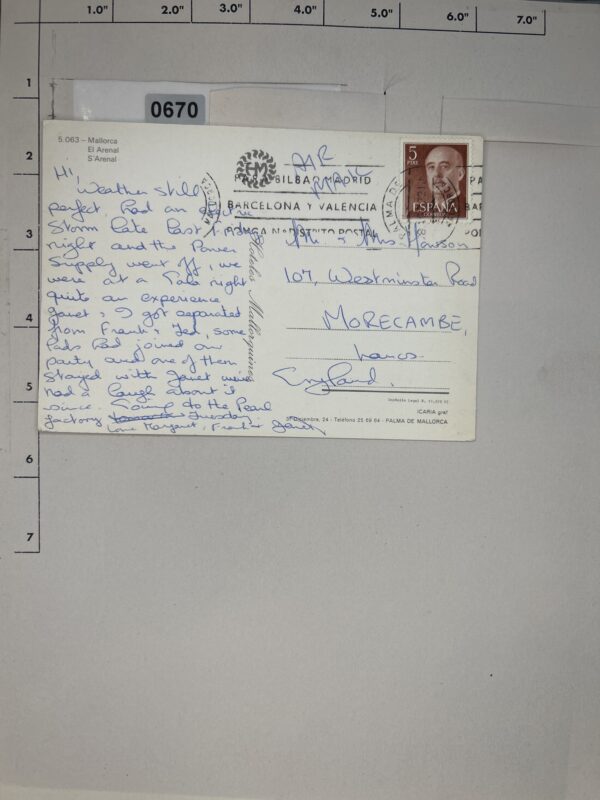 1.0" 2.0" 3.0" 4.0" 5.0" 6.0" 7.0"
1
2
3
4
5
6
7
0670
5.063 - Mallorca
El Arenal
S'Arenal
Hi,
Weather still
perfect, had an electric
Storm late last
night and the Power
Supply went off, we
were at a Gala night
quite an experience
Janet & I got separated
from Frank & Ted, some
lads had joined our
party and one of them
stayed with Janet weve
had a laugh about it
since. Going to the Pearl
factory Tuesday.
Love Margaret, Frank & Janet
AIR
MAIL
BILBAO MADRID
BARCELONA Y VALENCIA
PONGA Nº DISTRITO POSTAL
PALMA DE
PA
BAR
PO
5
PTAS
ESPAÑA
CORREOS
Mr & Mrs Howson
107, Westminster Road
MORECAMBE,
Lancs.
England.
Hoteles Mallorquines
ICARIA graf
31 Diciembre, 24 - Teléfono 25 69 64 - PALMA DE MALLORCA